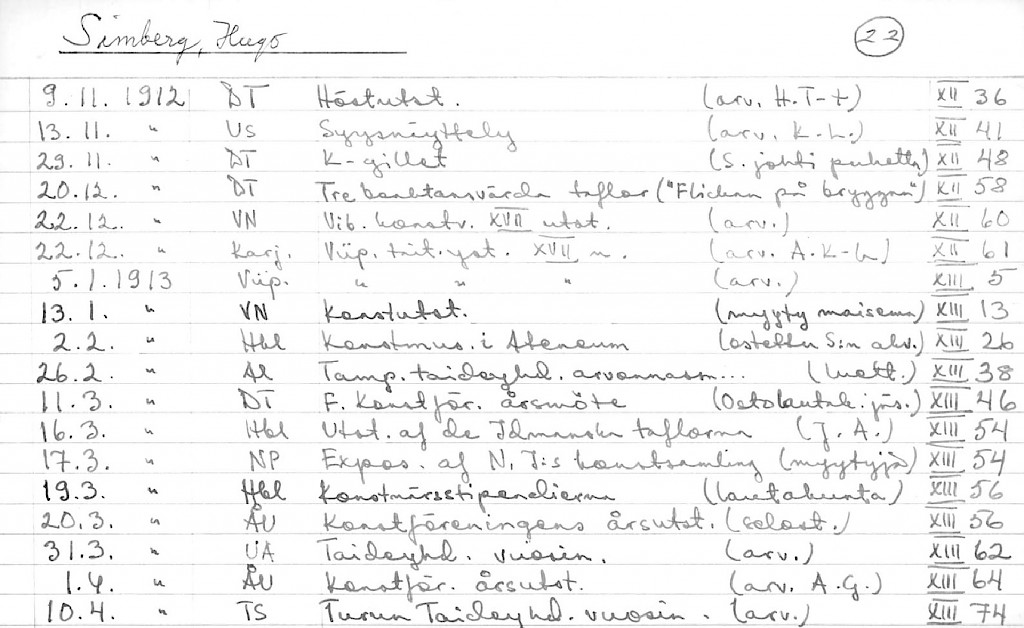 Simberg, Hugo 22
9.11.1912 DT Höstutst. (arv. H.T-t) XII 36
13.11. " US Syysnäyttely (arv. K-L.) XII 41
29.11. " DT K-gillet (S. johti puhetta) XII 48
20.12. " DT Tre beaktansvärda taflor ("Flickan på bryggan") XII 58
22.12. " VN Vib. konstv. XVII utst. (arv.) XII 60
22.12. " Karj. Viip. tait.yst. XVII n. (arv. A.K-L) XII 61
5.1.1913 Viip. " " " (arv.) XIII 5
13.1. " VN Konstutst. (myyty maisema) XIII 13
2.2. " Hbl Konstmus. i Ateneum (ostettu S:n akv.) XIII 26
26.2. " Al Tamp. taideyhd. arvonnassa... (luett.) XIII 38
11.3. " DT F. Konstför. årsmöte (Ostolautak. jäs.) XIII 46
16.3. " Hbl Utst. af de Idmanska taflorna (J.A.) XIII 54
17.3. " NP Expos. af N. I:s konstsamling (myytyjä) XIII 54
19.3. " Hbl Konstnärsstipendierna (lautakunta) XIII 56
20.3. " ÅU Konstföreningens årsutst. (selost.) XIII 56
31.3. " UA Taideyhd. vuosin. (arv.) XIII 62
1.4. " ÅU Konstför. årsutst. (arv. A.G.) XIII 64
10.4. " TS Turun Taideyhd. vuosin. (arv.) XIII 74